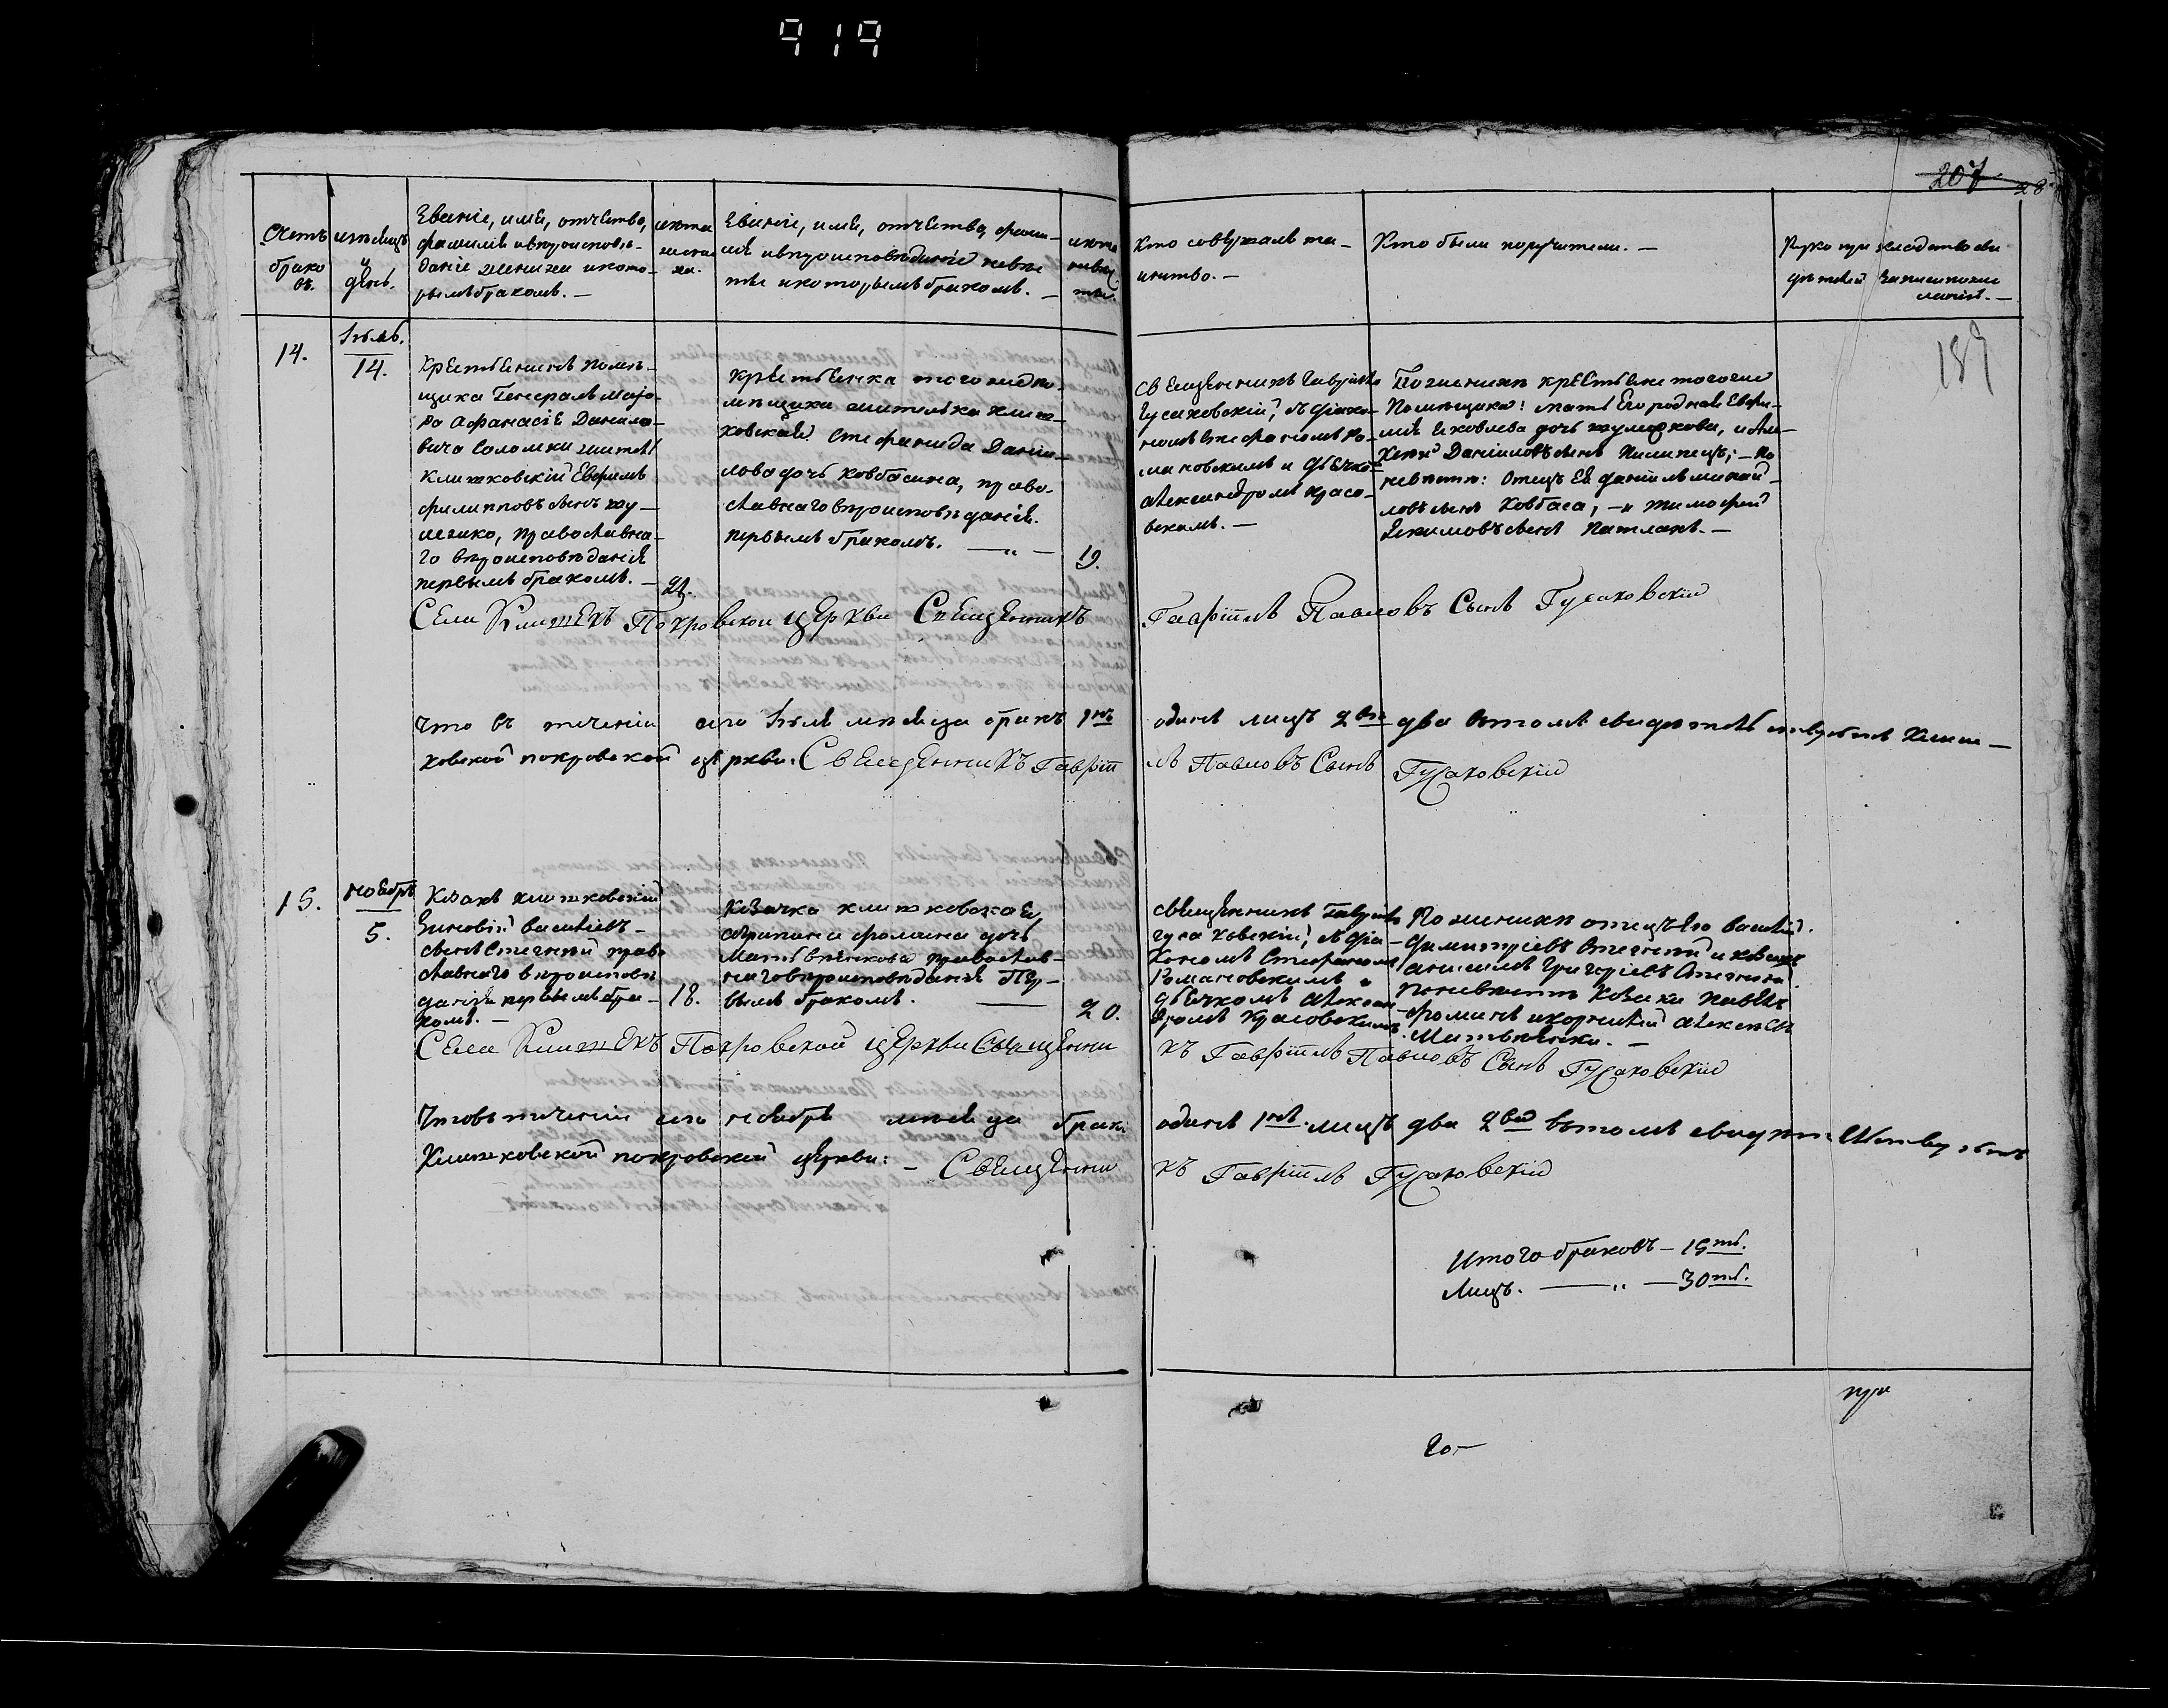 919
207
28
Счетъ браковъ.
мѣсяцъ и день.
Званіе, имя, отчество,
фамилія и вѣроисповѣ-
даніе жениха и кото-
рымъ бракомъ. —
лѣта жениха.
Званіе, имя, отчество, фами-
лія и вѣроисповѣданіе невѣс
ты и которымъ бракомъ. —
лѣта невѣсты.
Кто совершалъ та-
инство. —
Кто были поручители. —
189
14.
Іюль.
14.
Крестьянинъ помѣ-
щика Генералъ Маіо-
ра Афанасія Данило-
вича Соломки житель
Клишковскій Ефремъ
Филипповъ сынъ
православна-
го вѣроисповѣданія
первымъ бракомъ. —
21.
Крестьянка того же по-
мѣщика жителька клиш-
ковская Стефанида Даніи-
лова дочь Ковбасина, право-
славнаго вѣроисповѣданія.
первымъ бракомъ. — „ —
19.
Священникъ Гавріилъ
Гусаковскій, съ діако-
номъ Стефаномъ Ро-
мановскимъ и дьячко-
Александромъ Красо-
вскимъ. —
По женихѣ крестьяне того же
Помѣщика: мать его родная Евфи-
мія Яковлева дочь
Даніиловъ сынъ Пилипецъ; — по
невѣстѣ: Отецъ ея Даніилъ Михай-
ловъ сынъ Ковбаса, — и Тимофей
Екимовъ сынъ Патлахъ. —
Села Клишекъ Покровской церкви Священникъ Гавріилъ Павловъ Сынъ Гусаковскій
Что въ теченіи сего Іюля мѣсяца бракъ 1нъ одинъ лицъ 2ва два въ томъ свидѣтельствуетъ Клиш-
ковской покровской церкви: Священникъ Гавріилъ Павловъ Сынъ Гусаковскій
15.
Ноябрь
5.
Козакъ клишковскій
Зиновій Васильевъ
сынъ Стегній право
славнаго вѣроисповѣ
данія первымъ бра-
комъ. —
18.
Козачка клишковская
Агрипина Фомина дочь
Матвѣенкова православ-
наго вѣроисповѣданія Пер-
вымъ бракомъ. —
20.
Священникъ Гавріилъ
Гусаковскій, съ діа-
кономъ Стефаномъ
Романовскимъ и
дьячкомъ Алексан-
дромъ Красовскимъ.
По женихѣ отецъ его Василій
Димитріевъ Стегній и козакъ
Анисимъ Григоріевъ Стегній
По невѣстѣ козаки Павелъ
Фоминъ и Корнилій Алексѣевъ
Матвѣенки. —
Села Клишекъ Покровской церкви Священникъ Гавріилъ Павловъ Сынъ Гусаковскій
Что въ теченіи сего ноября мѣсяца бракъ одинъ 1нъ лицъ два 2ва въ томъ свидѣтельствуетъ
Клишковской покровской церкви: — Священникъ Гавріилъ Гусаковскій
Итого браковъ — 15ть.
Лицъ. — „ — 30ть.